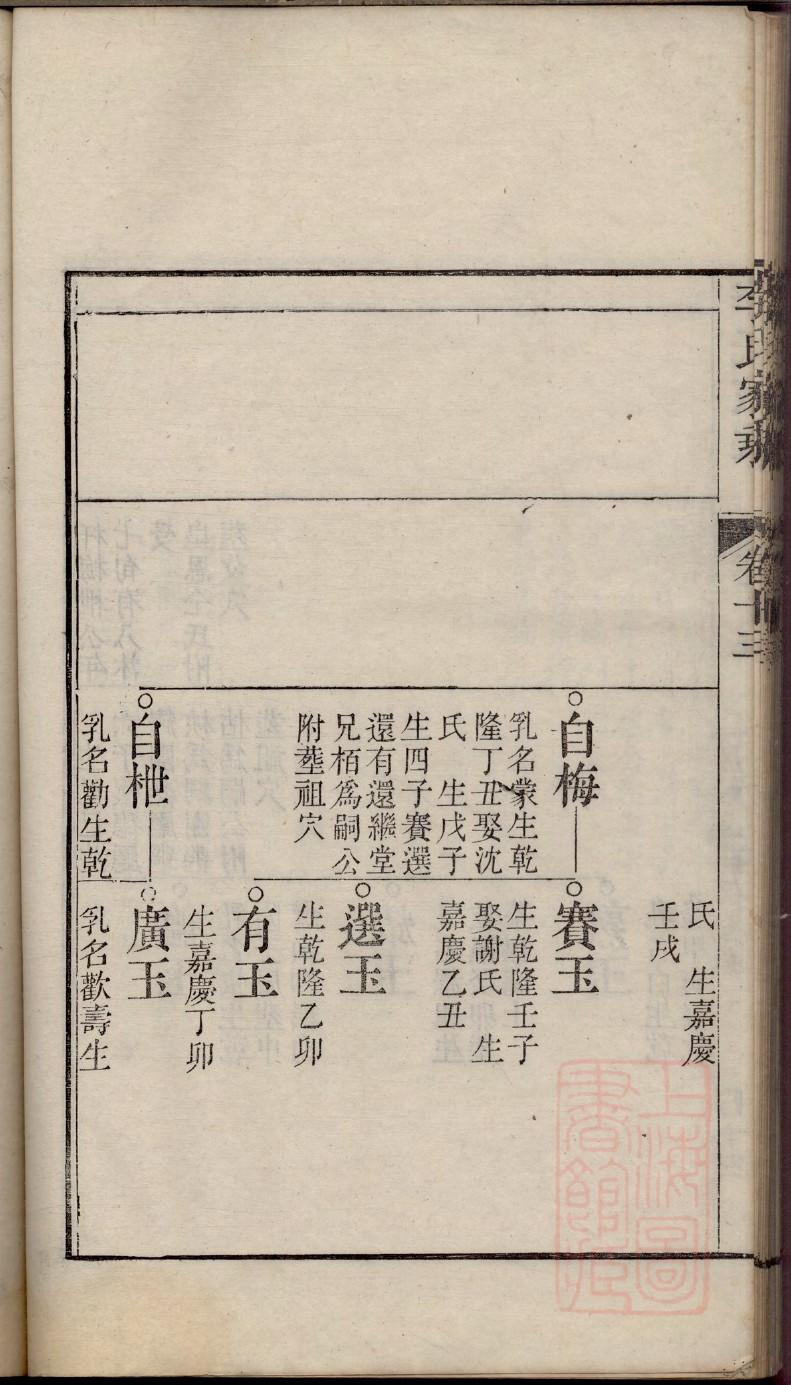 李氏家乘
卷十三
氏　生嘉慶
壬戌
自梅
乳名蒙生乾
隆丁丑娶沈
氏　生戊子
生四子賽選
還有還繼堂
兄栢爲嗣公
附塟祖穴
賽玉
生乾隆壬子
娶謝氏　生
嘉慶乙丑
選玉
生乾隆乙卯
有玉
生嘉慶丁卯
自枻
乳名勸生乾
廣玉
乳名歡壽生
上海圖
書館藏